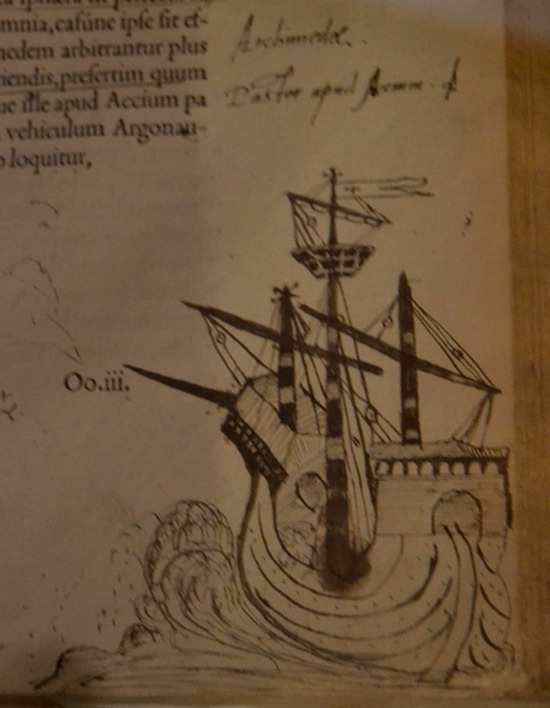 mnia,casúne ipse sit ef-
medem arbitrantur plus
iendis,presertim quum
ne ille apud Accium pa
vehiculum Argonau-
loquitur,
Oo.iii.
Archimedes.
Pastor apud